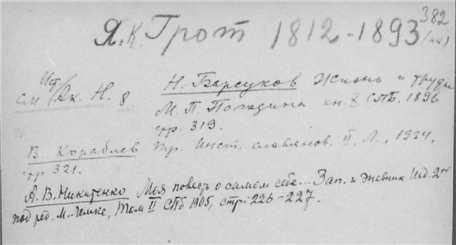 Я.К. Грот 1812-1893 382
(ак)
Ист
см. Ак. Н. 8. Н. Барсуков Жизнь и труды
М. П. Погодина кн. X СПб. 1896
стр. 319.
В. Кораблев Тр. Инст. славянов. II, Л., 1934,
стр. 321.
А. В. Никитенко Моя повесть о самом себе... Зап. и дневник Изд. 2ое
под ред. М. Лемке, Том II СПб 1905, стр. 226-227.